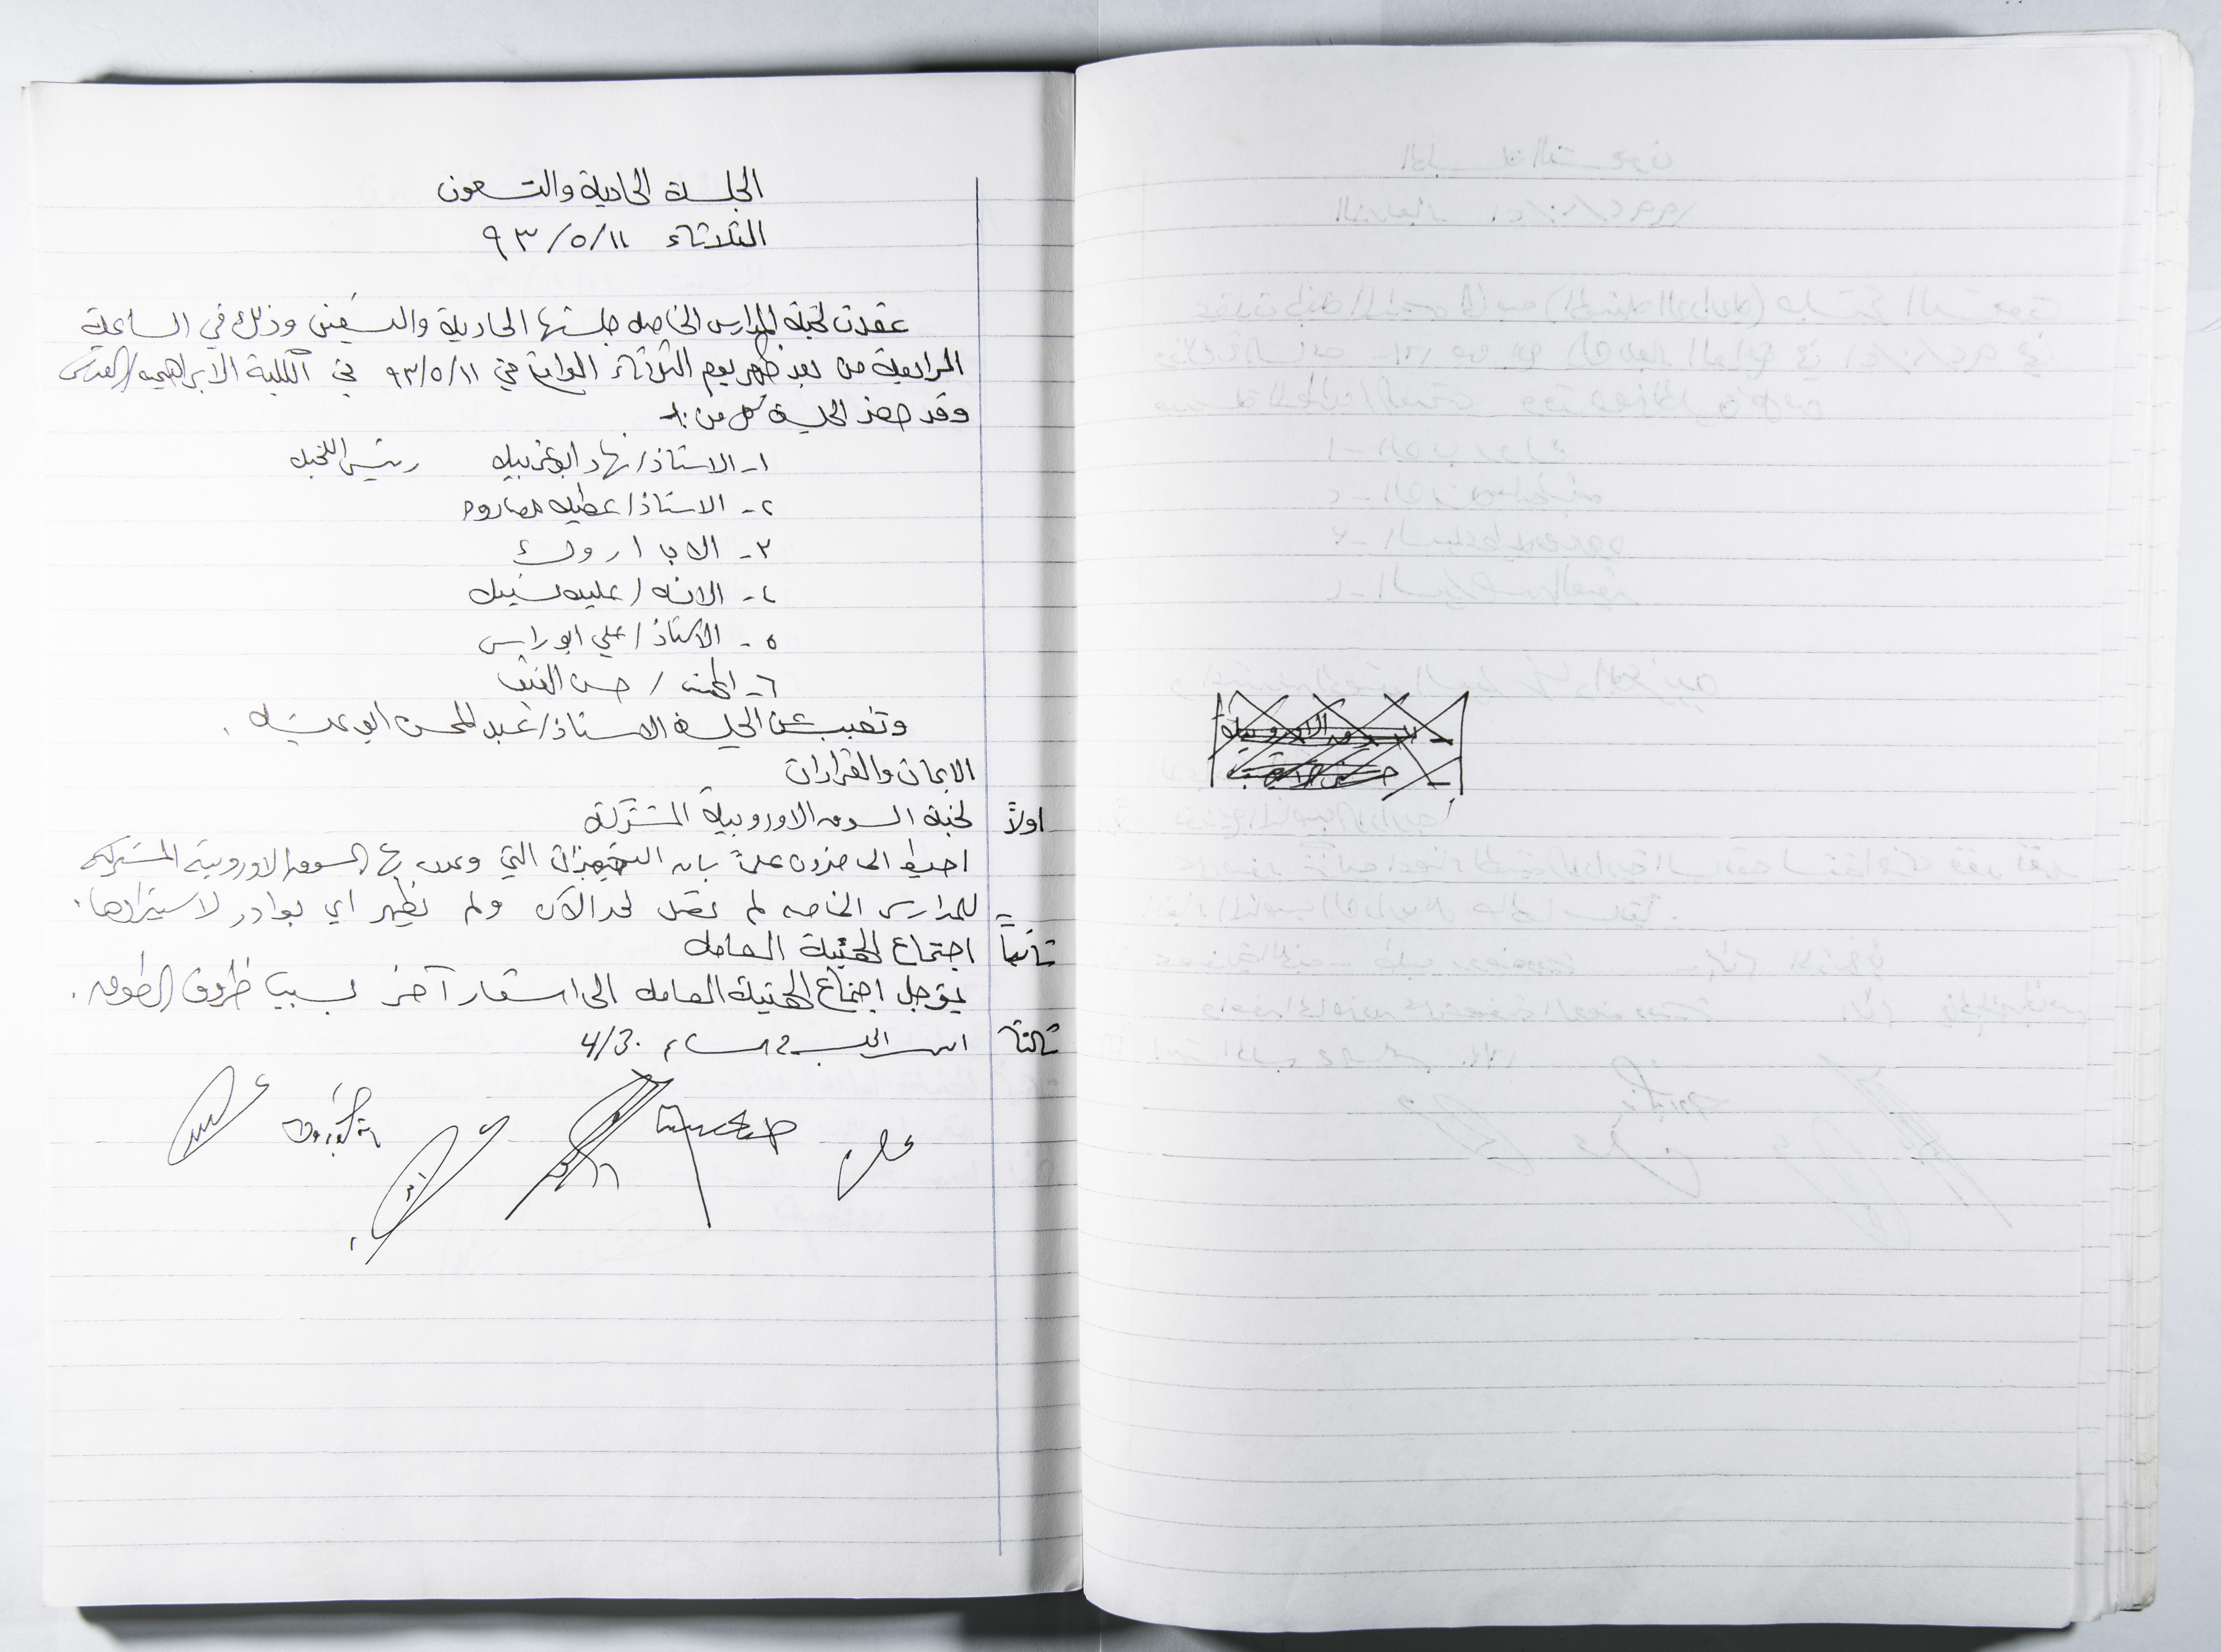 الجلسة الحادية والتسعون
الثلاثاء ١١/٥/٩٣
عقدت لجنة المدارس الخاصه جلستها الحادية والتسعين وذلك في الساعة
الرابعة من بعد ظهر يوم الثلاثاء الواقع في ٩٣/٥/١١ في الكلية الابراهيميه/القدس
وقد حضر الجلسة كل من :-
١- الاستاذ/ نهاد ابو غربيه رئيس اللجنه
٢- الاستاذ/ عطيه مصاروه
٣- الاب /
٤- الانسه / عليه نسيبه
٥- الاستاذ / علي ابو راس
٦- / حسن
وتغيب عن الجلسة الاستاذ/ عبد المحسن ابو
الابحاث والقرارات
اولاً لجنة السوق الاوروبية المشتركة
احيط الحاضرون علماً بان التي وعدت بها السوق الاوروبية المشتركه
للمدارس الخاصه لم تصل لحد الآن ولم تظهر اي بوادر
ثانياً اجتماع الهيئة العامه
يؤجل اجتماع الهيئة العامه الى اشعار آخر بسبب ظروف الطوق.
ثالثاً انتهت الجلسة 4/30
السوق الاوروبية